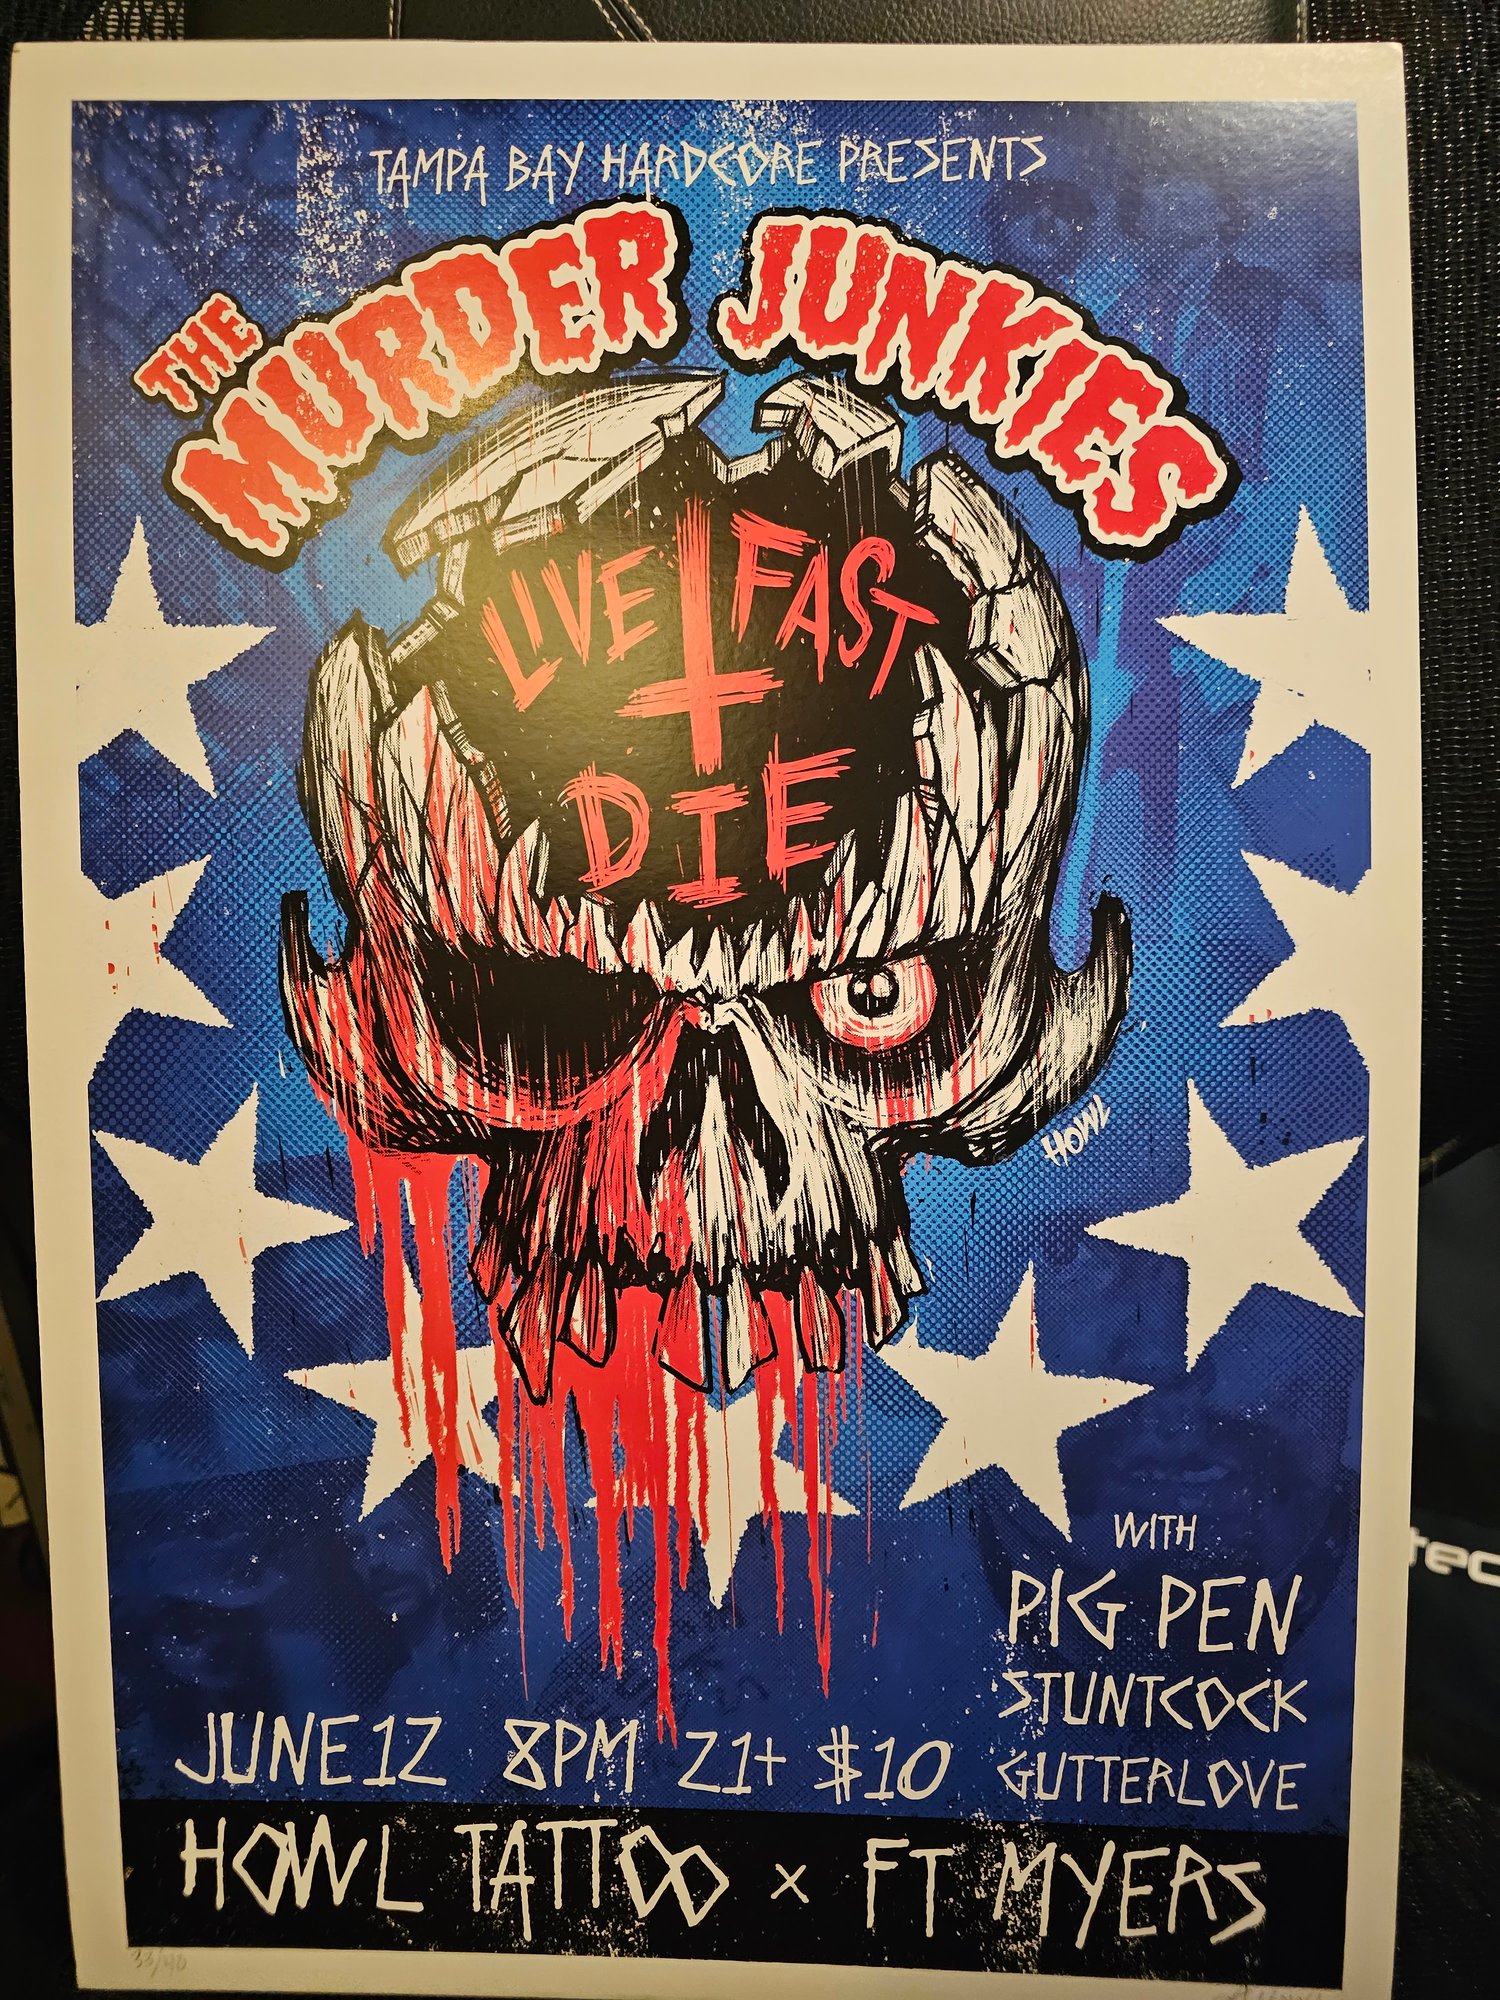 TAMPA BAY HARDCORE PRESENTS
THE
MURDER JUNKIES
LIVE FAST
DIE
HOWL
WITH
PIG PEN
STUNTCOCK
GUTTERLOVE
JUNE 12 8PM 21+ $10
HOWL TATTOO x FT MYERS